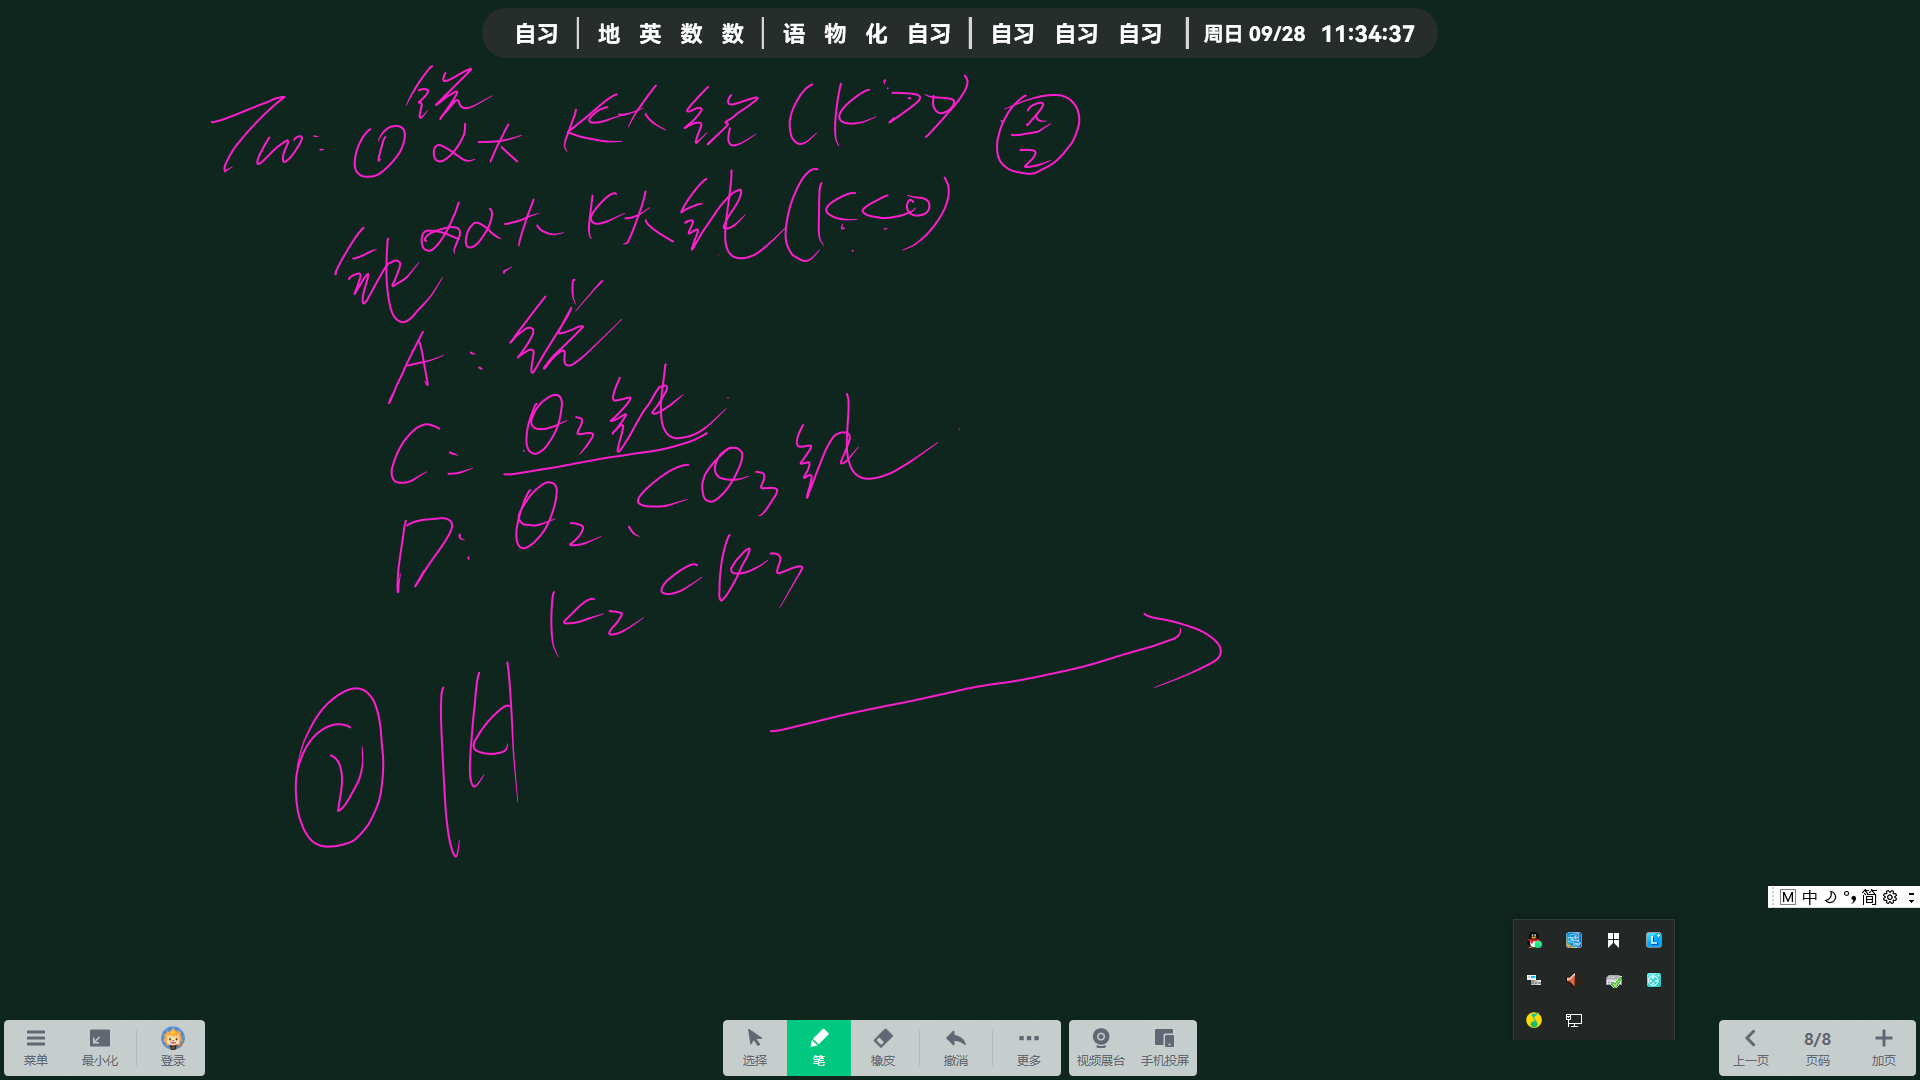 自习 | 地 英 数 数 | 语 物 化 自习 | 自习 自习 自习 | 周日 09/28 11:34:37
锐
Two: ① α大 K大 锐 (K>0) π/2
钝 α大 K大 钝 (K<0)
A: 锐
C= θ3钝
D: θ2 < θ3钝
K2 < K3
② |K|
M 中 简
菜单 最小化 登录 选择 笔 橡皮 撤消 更多 视频展台 手机投屏 上一页 8/8 页码 加页